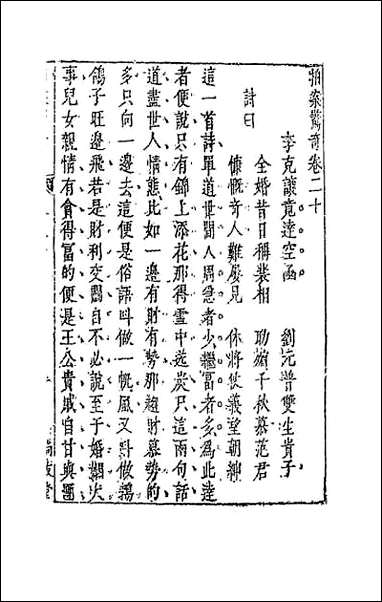 拍案驚奇卷二十
李克讓竟達空函　劉元普雙生貴子
全婚昔日稱裴相　助殯千秋慕范君
詩曰
慷慨奇人難屢見　休將仗義望朝紳
這一首詩單道世間人周急者少繼富者多為此達
者便說只有錦上添花那得雪中送炭只這兩句話
道盡世人情態比如一邊有財有勢那趨財慕勢的
多只向一邊去這便是俗語叫做一帆風又叫做鵓
鴿子旺邊飛若是財利交關自不必說至于婚姻大
事兒女親情有貪得富的便是王公貴戚自甘與團
尚友堂